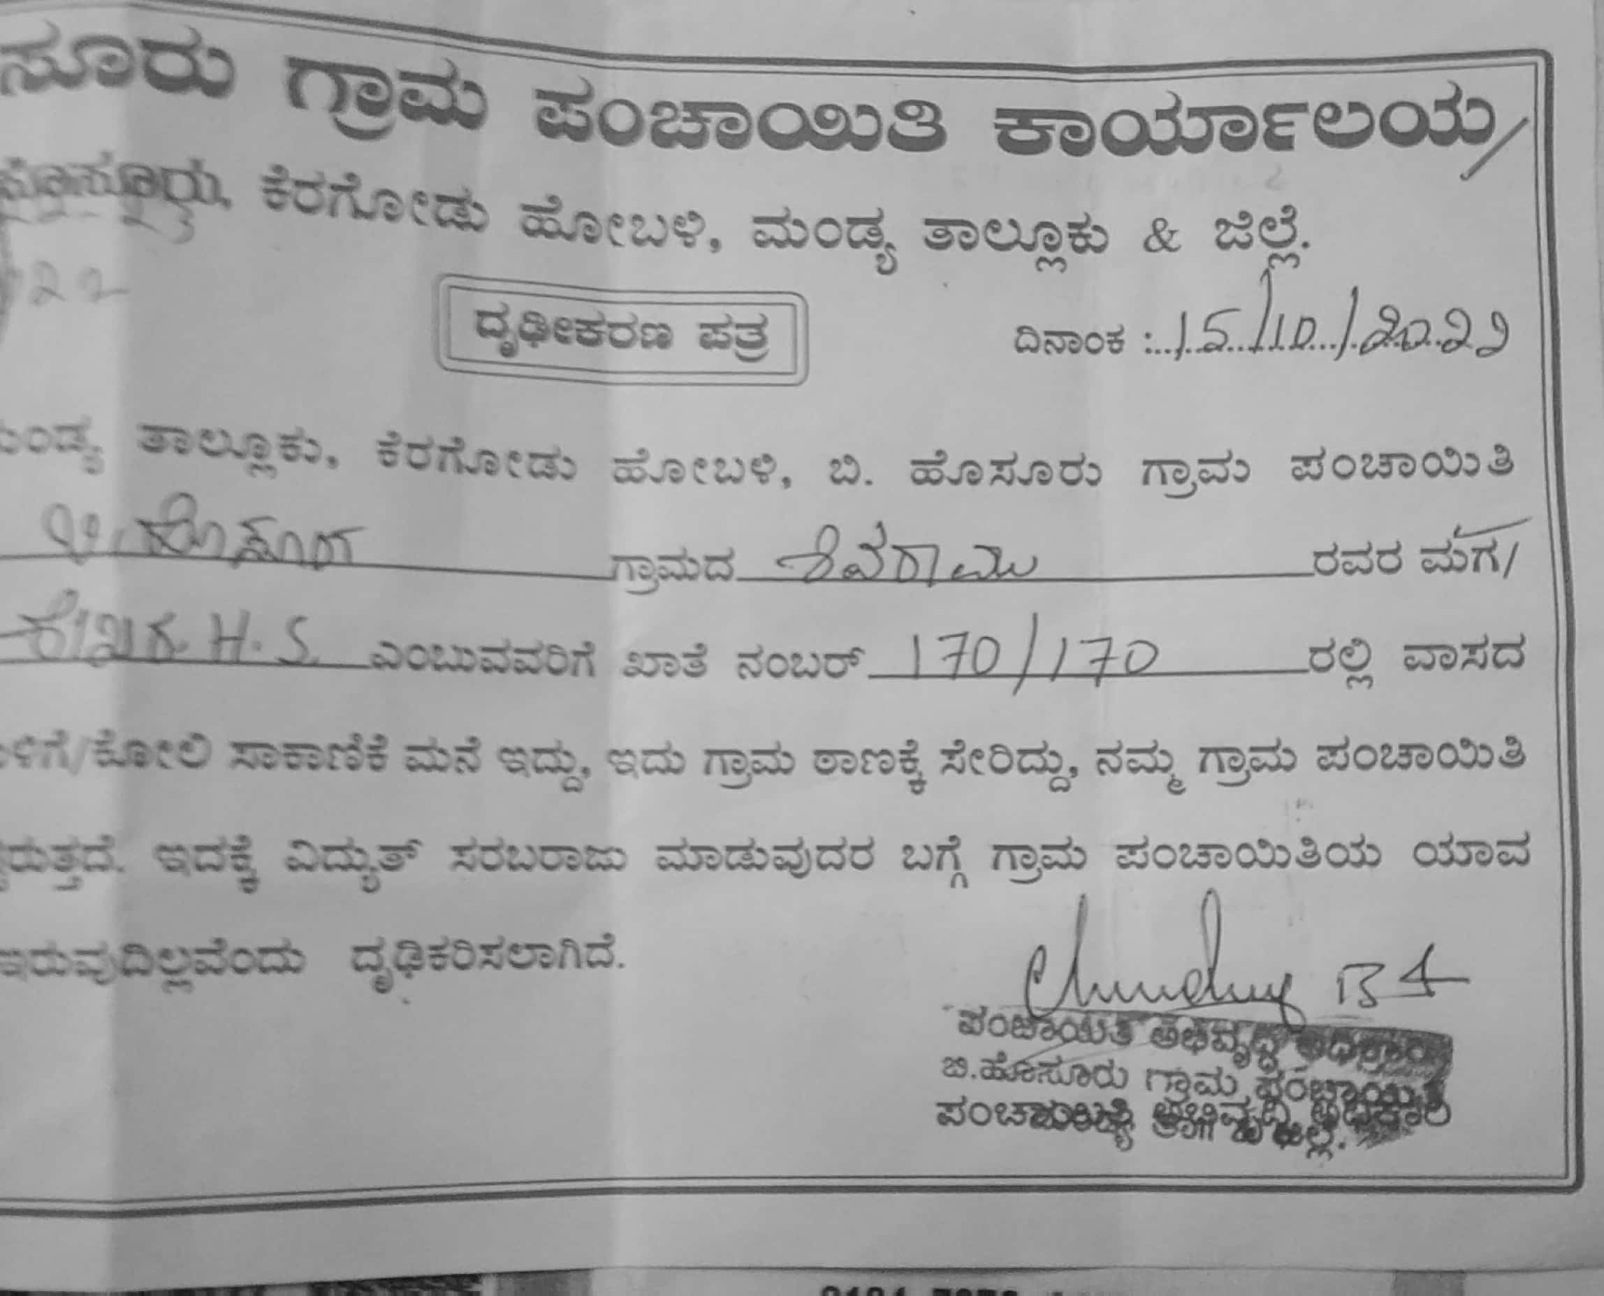 ಸೂರು ಗ್ರಾಮ ಪಂಚಾಯಿತಿ ಕಾರ್ಯಾಲಯ
ಕೆರಗೋಡು ಹೋಬಳಿ, ಮಂಡ್ಯ ತಾಲ್ಲೂಕು & ಜಿಲ್ಲೆ.
22
ದೃಢೀಕರಣ ಪತ್ರ
ದಿನಾಂಕ : 15/10/2022
ತಾಲ್ಲೂಕು, ಕೆರಗೋಡು ಹೋಬಳಿ, ಬಿ. ಹೊಸೂರು ಗ್ರಾಮ ಪಂಚಾಯಿತಿ
ಬಿ. ಹೊಸೂರು ಗ್ರಾಮದ ಶಿವರಾಮು ರವರ ಮಗ/
H.S. ಎಂಬುವವರಿಗೆ ಖಾತೆ ನಂಬರ್ 170/170 ರಲ್ಲಿ ವಾಸದ
ಳಿಗೆ/ಕೋಲಿ ಸಾಕಾಣಿಕೆ ಮನೆ ಇದ್ದು, ಇದು ಗ್ರಾಮ ಠಾಣಕ್ಕೆ ಸೇರಿದ್ದು, ನಮ್ಮ ಗ್ರಾಮ ಪಂಚಾಯಿತಿ
ರುತ್ತದೆ. ಇದಕ್ಕೆ ವಿದ್ಯುತ್ ಸರಬರಾಜು ಮಾಡುವುದರ ಬಗ್ಗೆ ಗ್ರಾಮ ಪಂಚಾಯಿತಿಯ ಯಾವ
ಇರುವುದಿಲ್ಲವೆಂದು ದೃಢಿಕರಿಸಲಾಗಿದೆ.
ಪಂಚಾಯಿತಿ ಅಭಿವೃದ್ಧಿ ಅಧಿಕಾರಿ
ಬಿ.ಹೊಸೂರು ಗ್ರಾಮ ಪಂಚಾಯಿತಿ
ಪಂಚಾಯಿತಿ ಅಭಿವೃದ್ಧಿ ಅಧಿಕಾರಿ